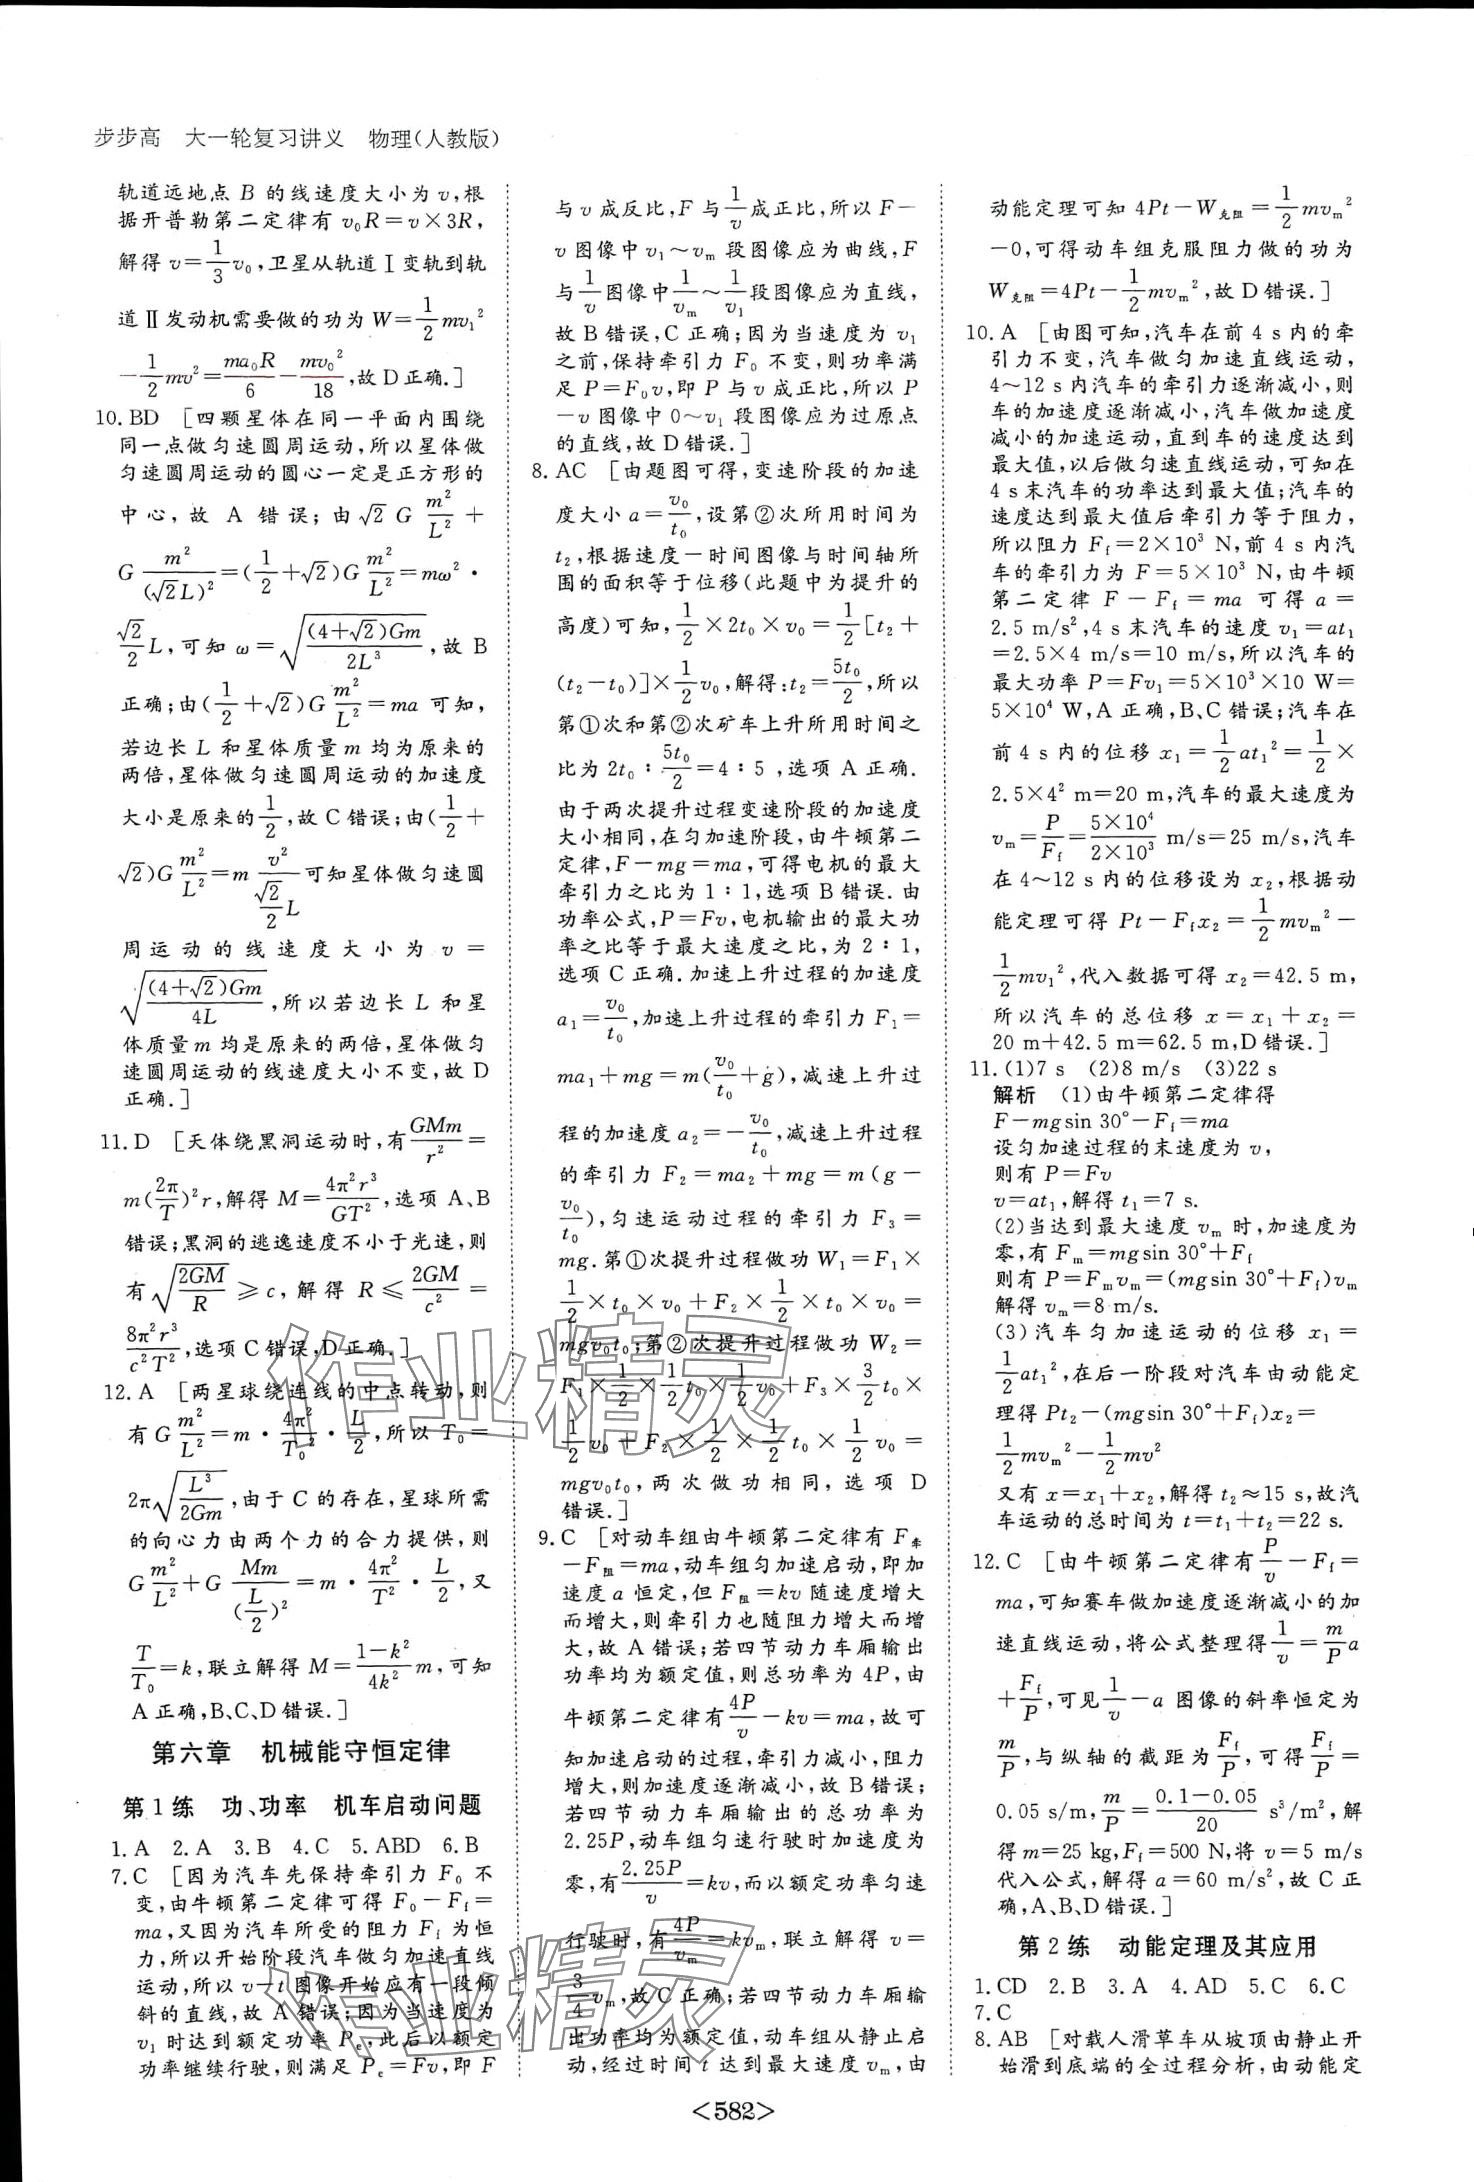 步步高 大一轮复习讲义 物理(人教版)
轨道远地点 B 的线速度大小为 v,根
据开普勒第二定律有 v₀R=v×3R,
解得 v=1/3 v₀,卫星从轨道Ⅰ变轨到轨
道Ⅱ发动机需要做的功为 W=1/2 mv₁²
-1/2 mv²=ma₀R/6-mv₀²/18,故 D 正确.]
10.BD [四颗星体在同一平面内围绕
同一点做匀速圆周运动,所以星体做
匀速圆周运动的圆心一定是正方形的
中心,故 A 错误;由√2 G m²/L²+
G m²/(√2L)²=(1/2+√2)G m²/L²=mω²·
√2/2 L,可知 ω=√((4+√2)Gm/2L³),故 B
正确;由(1/2+√2)G m²/L²=ma 可知,
若边长 L 和星体质量 m 均为原来的
两倍,星体做匀速圆周运动的加速度
大小是原来的1/2,故 C 错误;由(1/2+
√2)G m²/L²=m v²/(√2/2 L)可知星体做匀速圆
周运动的线速度大小为 v=
√((4+√2)Gm/4L),所以若边长 L 和星
体质量 m 均是原来的两倍,星体做匀
速圆周运动的线速度大小不变,故 D
正确.]
11.D [天体绕黑洞运动时,有GMm/r²=
m(2π/T)²r,解得 M=4π²r³/GT²,选项 A、B
错误;黑洞的逃逸速度不小于光速,则
有√(2GM/R)≥c,解得 R≤2GM/c²=
8π²r³/c²T²,选项 C 错误,D 正确.]
12.A [两星球绕连线的中点转动,则
有 G m²/L²=m·4π²/T₀²·L/2,所以 T₀=
2π√(L³/2Gm),由于 C 的存在,星球所需
的向心力由两个力的合力提供,则
G m²/L²+G Mm/(L/2)²=m·4π²/T²·L/2,又
T/T₀=k,联立解得 M=(1-k²)/4k² m,可知
A 正确,B、C、D 错误.]
第六章 机械能守恒定律
第1练 功、功率 机车启动问题
1.A 2.A 3.B 4.C 5.ABD 6.B
7.C [因为汽车先保持牵引力 F₀ 不
变,由牛顿第二定律可得 F₀-Ff=
ma,又因为汽车所受的阻力 Ff 为恒
力,所以开始阶段汽车做匀加速直线
运动,所以 v-t 图像开始应有一段倾
斜的直线,故 A 错误;因为当速度为
v₁ 时达到额定功率 Pe,此后以额定
功率继续行驶,则满足 Pe=Fv,即 F
与 v 成反比,F 与1/v成正比,所以 F-
v 图像中 v₁~vm 段图像应为曲线,F
与1/v图像中1/vm~1/v₁段图像应为直线,
故 B 错误,C 正确;因为当速度为 v₁
之前,保持牵引力 F₀ 不变,则功率满
足 P=F₀v,即 P 与 v 成正比,所以 P
-v 图像中 0~v₁ 段图像应为过原点
的直线,故 D 错误.]
8.AC [由题图可得,变速阶段的加速
度大小 a=v₀/t₀,设第②次所用时间为
t₂,根据速度一时间图像与时间轴所
围的面积等于位移(此题中为提升的
高度)可知,1/2×2t₀×v₀=1/2[t₂+
(t₂-t₀)]×1/2 v₀,解得:t₂=5t₀/2,所以
第①次和第②次矿车上升所用时间之
比为 2t₀∶5t₀/2=4∶5,选项 A 正确.
由于两次提升过程变速阶段的加速度
大小相同,在匀加速阶段,由牛顿第二
定律,F-mg=ma,可得电机的最大
牵引力之比为 1∶1,选项 B 错误.由
功率公式,P=Fv,电机输出的最大功
率之比等于最大速度之比,为 2∶1,
选项 C 正确.加速上升过程的加速度
a₁=v₀/t₀,加速上升过程的牵引力 F₁=
ma₁+mg=m(v₀/t₀+g),减速上升过
程的加速度 a₂=-v₀/t₀,减速上升过程
的牵引力 F₂=ma₂+mg=m(g-
v₀/t₀),匀速运动过程的牵引力 F₃=
mg.第①次提升过程做功 W₁=F₁×
1/2×t₀×v₀+F₂×1/2×t₀×v₀=
mgv₀t₀;第②次提升过程做功 W₂=
F₁×1/2×1/2t₀×1/2v₀+F₃×3/2t₀×
1/2v₀+F₂×1/2×1/2t₀×1/2v₀=
mgv₀t₀,两次做功相同,选项 D
错误.]
9.C [对动车组由牛顿第二定律有 F牵
-F阻=ma,动车组匀加速启动,即加
速度 a 恒定,但 F阻=kv 随速度增大
而增大,则牵引力也随阻力增大而增
大,故 A 错误;若四节动力车厢输出
功率均为额定值,则总功率为 4P,由
牛顿第二定律有4P/v-kv=ma,故可
知加速启动的过程,牵引力减小,阻力
增大,则加速度逐渐减小,故 B 错误;
若四节动力车厢输出的总功率为
2.25P,动车组匀速行驶时加速度为
零,有2.25P/v=kv,而以额定功率匀速
行驶时,有4P/vm=kvm,联立解得 v=
3/4 vm,故 C 正确;若四节动力车厢输
出功率均为额定值,动车组从静止启
动,经过时间 t 达到最大速度 vm,由
动能定理可知 4Pt-W克阻=1/2 mvm²
-0,可得动车组克服阻力做的功为
W克阻=4Pt-1/2 mvm²,故 D 错误.]
10.A [由图可知,汽车在前 4 s 内的牵
引力不变,汽车做匀加速直线运动,
4~12 s 内汽车的牵引力逐渐减小,则
车的加速度逐渐减小,汽车做加速度
减小的加速运动,直到车的速度达到
最大值,以后做匀速直线运动,可知在
4 s 末汽车的功率达到最大值;汽车的
速度达到最大值后牵引力等于阻力,
所以阻力 Ff=2×10³ N,前 4 s 内汽
车的牵引力为 F=5×10³ N,由牛顿
第二定律 F-Ff=ma 可得 a=
2.5 m/s²,4 s 末汽车的速度 v₁=at₁
=2.5×4 m/s=10 m/s,所以汽车的
最大功率 P=Fv₁=5×10³×10 W=
5×10⁴ W,A 正确,B、C 错误;汽车在
前 4 s 内的位移 x₁=1/2 at₁²=1/2×
2.5×4² m=20 m,汽车的最大速度为
vm=P/Ff=5×10⁴/2×10³ m/s=25 m/s,汽车
在 4~12 s 内的位移设为 x₂,根据动
能定理可得 Pt-Ffx₂=1/2 mvm²-
1/2 mv₁²,代入数据可得 x₂=42.5 m,
所以汽车的总位移 x=x₁+x₂=
20 m+42.5 m=62.5 m,D 错误.]
11.(1)7 s (2)8 m/s (3)22 s
解析 (1)由牛顿第二定律得
F-mgsin 30°-Ff=ma
设匀加速过程的末速度为 v,
则有 P=Fv
v=at₁,解得 t₁=7 s.
(2)当达到最大速度 vm 时,加速度为
零,有 Fm=mgsin 30°+Ff
则有 P=Fmvm=(mgsin 30°+Ff)vm
解得 vm=8 m/s.
(3)汽车匀加速运动的位移 x₁=
1/2 at₁²,在后一阶段对汽车由动能定
理得 Pt₂-(mgsin 30°+Ff)x₂=
1/2 mvm²-1/2 mv²
又有 x=x₁+x₂,解得 t₂≈15 s,故汽
车运动的总时间为 t=t₁+t₂=22 s.
12.C [由牛顿第二定律有P/v-Ff=
ma,可知赛车做加速度逐渐减小的加
速直线运动,将公式整理得1/v=m/P a
+Ff/P,可见1/v-a 图像的斜率恒定为
m/P,与纵轴的截距为Ff/P,可得Ff/P=
0.05 s/m,m/P=(0.1-0.05)/20 s³/m²,解
得 m=25 kg,Ff=500 N,将 v=5 m/s
代入公式,解得 a=60 m/s²,故 C 正
确,A、B、D 错误.]
第2练 动能定理及其应用
1.CD 2.B 3.A 4.AD 5.C 6.C
7.C
8.AB [对载人滑草车从坡顶由静止开
始滑到底端的全过程分析,由动能定
<582>
作业精灵
作业精灵